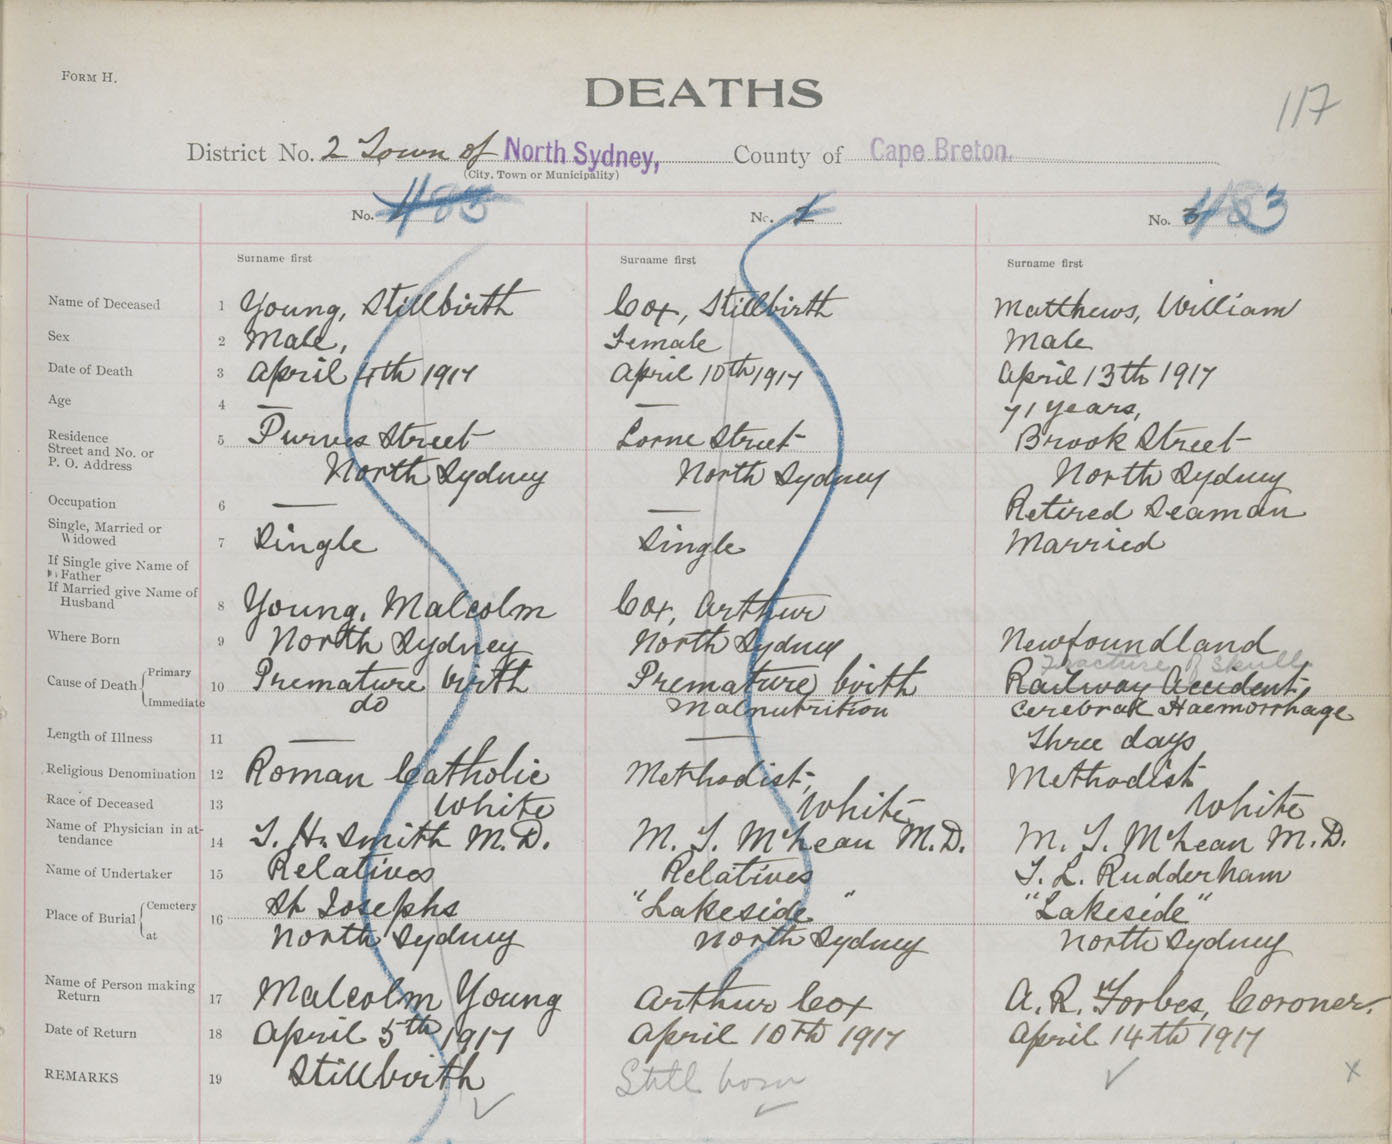 FORM H.
DEATHS
117
District No. 2 Town of North Sydney, County of Cape Breton.
(City, Town or Municipality)
No. No. 2 No. 3 483
Surname first Surname first Surname first
Name of Deceased 1 Young, Stillbirth Cox, Stillbirth Matthews, William
Sex 2 Male, Female Male
Date of Death 3 April 4th 1917 April 10th 1917 April 13th 1917
Age 4 — — 71 years,
Residence Street and No. or P. O. Address 5 Purves Street Lorne Street Brook Street
North Sydney North Sydney North Sydney
Occupation 6 — — Retired Seaman
Single, Married or Widowed 7 Single Single Married
If Single give Name of Father
If Married give Name of Husband 8 Young, Malcolm Cox, Arthur
Where Born 9 North Sydney North Sydney Newfoundland
Fracture of Skull
Cause of Death Primary 10 Premature birth Premature birth Railway Accident,
Immediate do Malnutrition Cerebral Haemorrhage
Length of Illness 11 — — Three days
Religious Denomination 12 Roman Catholic Methodist, Methodist
Race of Deceased 13 White White White
Name of Physician in attendance 14 T. H. Smith M.D. M. T. McLean M.D. M. T. McLean M.D.
Name of Undertaker 15 Relatives Relatives T. L. Rudderham
Place of Burial Cemetery 16 St Josephs "Lakeside" "Lakeside"
at North Sydney North Sydney North Sydney
Name of Person making Return 17 Malcolm Young Arthur Cox A. R. Forbes, Coroner.
Date of Return 18 April 5th 1917 April 10th 1917 April 14th 1917
REMARKS 19 Stillbirth Still born